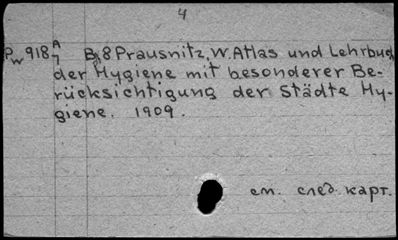 4
Pw 918 A/7 Bj8 Prausnitz, W. Atlas und Lehrbuch
der Hygiene mit besonderer Be-
rücksichtigung der Städte Hy-
giene. 1909.
см. след. карт.